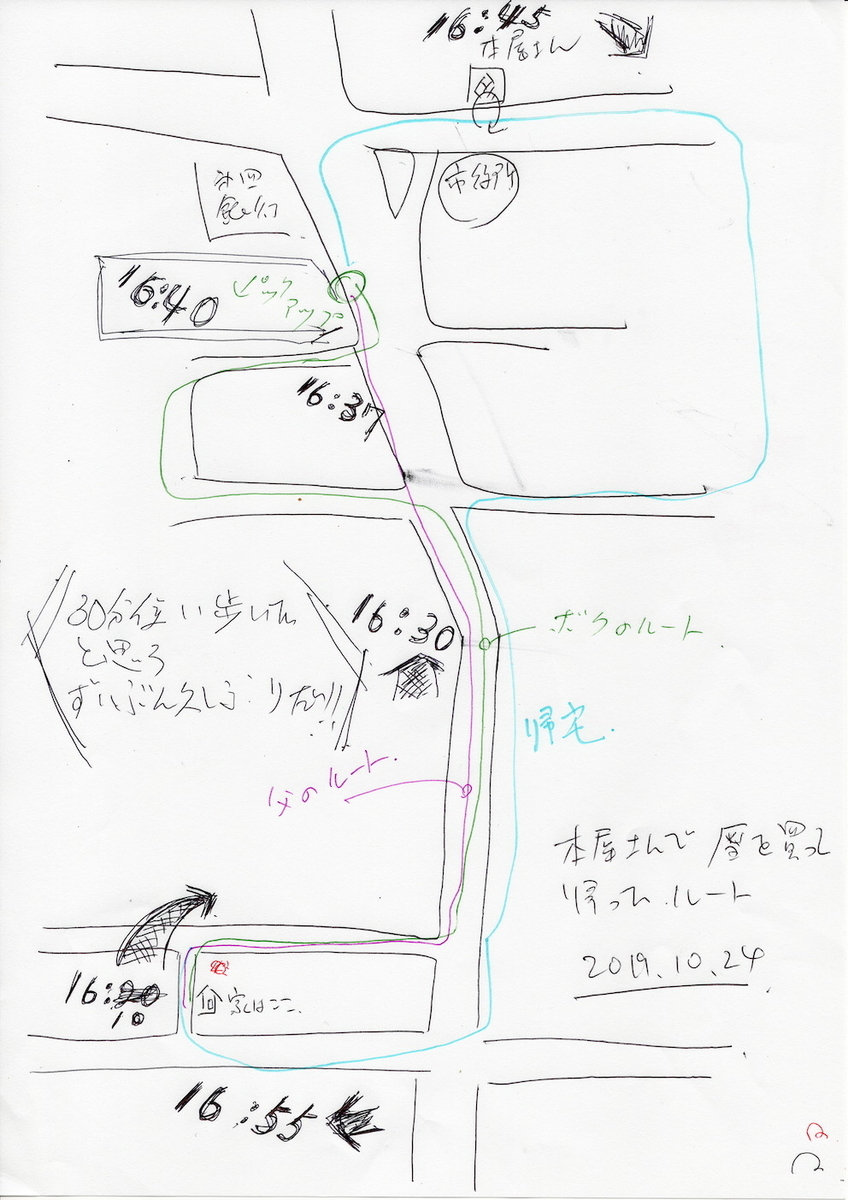 16:45
本屋さん
市役所
16:40
ピック
アップ
16:37
30分位い歩いてた
と思う
ずいぶん久しぶりだ!!
16:30
ボクのルート
帰宅.
父のルート.
本屋さんで 暦を買って
帰ったルート
2019.10.24
16:
10
家はここ.
16:55